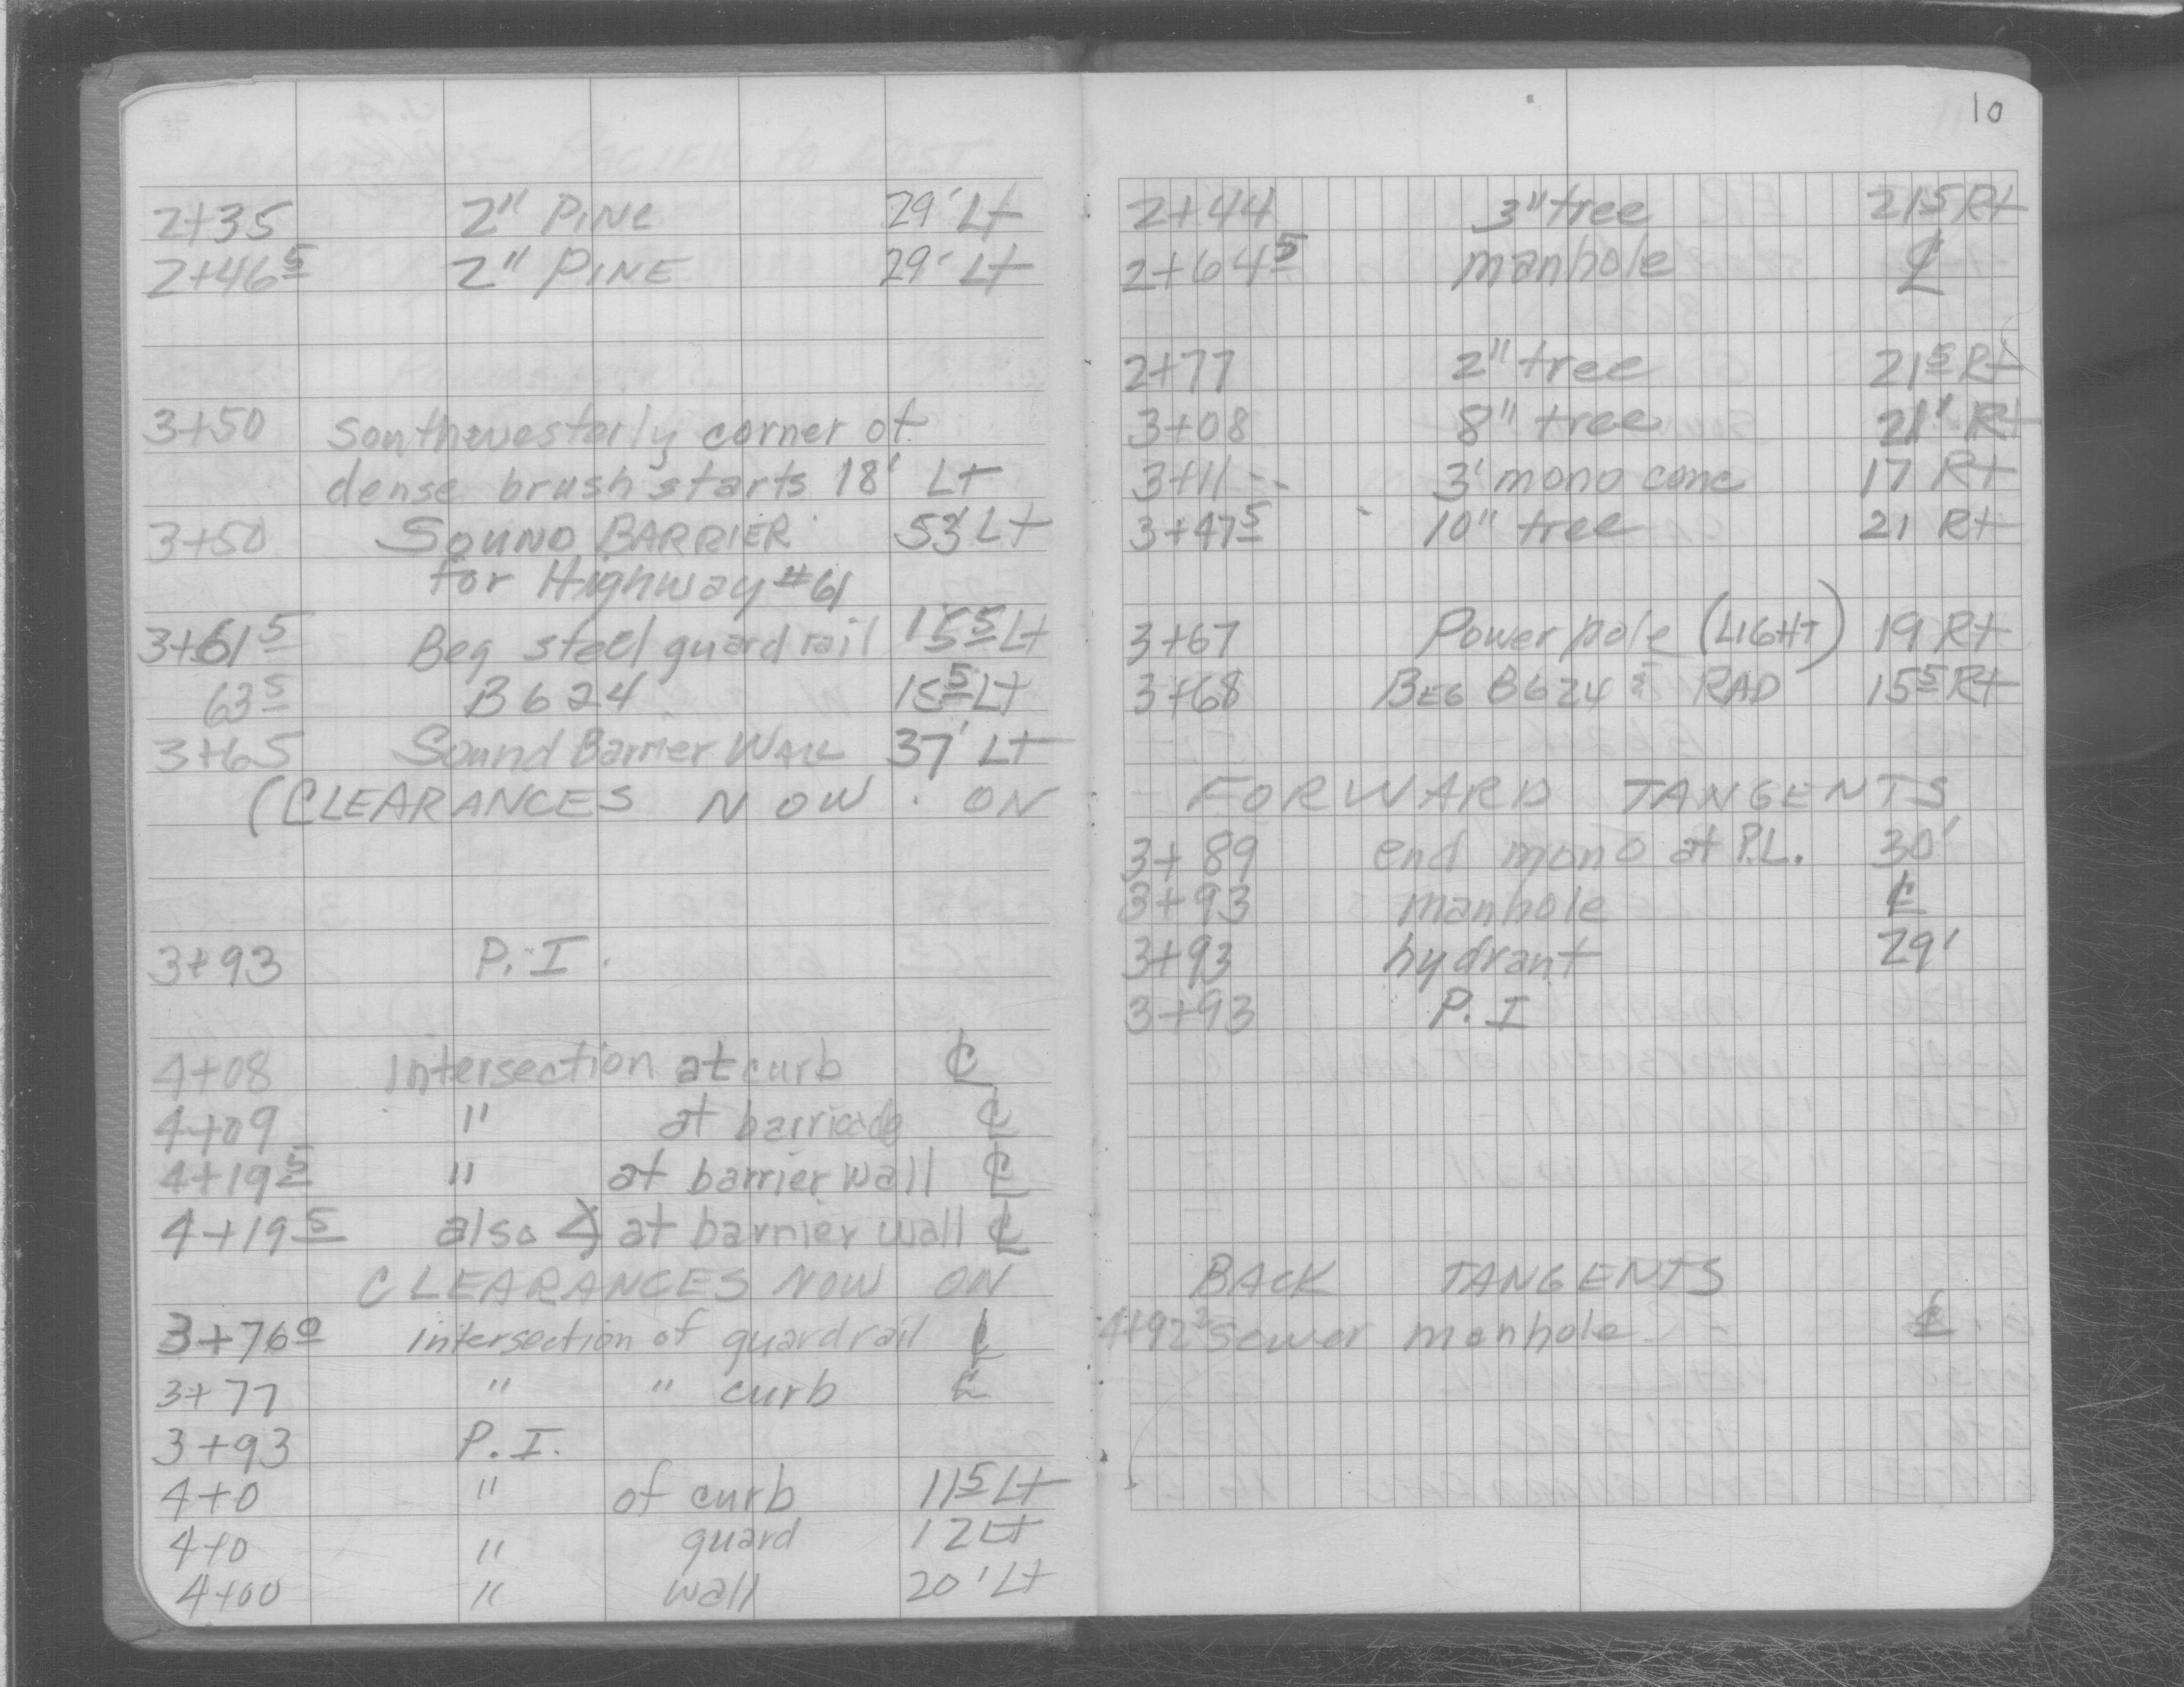 2+35 2" PINE 29' Lt
2+46⁵ 2" PINE 29' Lt
3+50 Southwesterly corner of
dense brush starts 18' Lt
3+50 SOUND BARRIER 53' Lt
for Highway #61
3+61⁵ Beg steel guard rail 15⁵ Lt
63⁵ B624 15⁵ Lt
3+65 Sound Barrier WALL 37' Lt
(CLEARANCES NOW ON
3+93 P.I.
4+08 Intersection at curb ℄
4+09 " at barricade ℄
4+19⁵ " at barrier wall ℄
4+19⁵ also ∠ at barrier wall ℄
CLEARANCES NOW ON
3+76⁰ intersection of guardrail ℄
3+77 " " curb ℄
3+93 P.I.
4+0 " of curb 11⁵ Lt
4+0 " guard 12 Lt
4+00 " wall 20' Lt
10
2+44 3" tree 21⁵ Rt
2+64⁵ manhole ℄
2+77 2" tree 21⁵ Rt
3+08 8" tree 21' Rt
3+11 3' mono conc 17 Rt
3+47⁵ 10" tree 21 Rt
3+67 Power pole (LIGHT) 19 Rt
3+68 BEG B624 & RAD 15⁵ Rt
FORWARD TANGENTS
3+89 end mono at P.L. 30'
3+93 manhole ℄
3+93 hydrant 29'
3+93 P.I
BACK TANGENTS
4+92 sewer manhole ℄